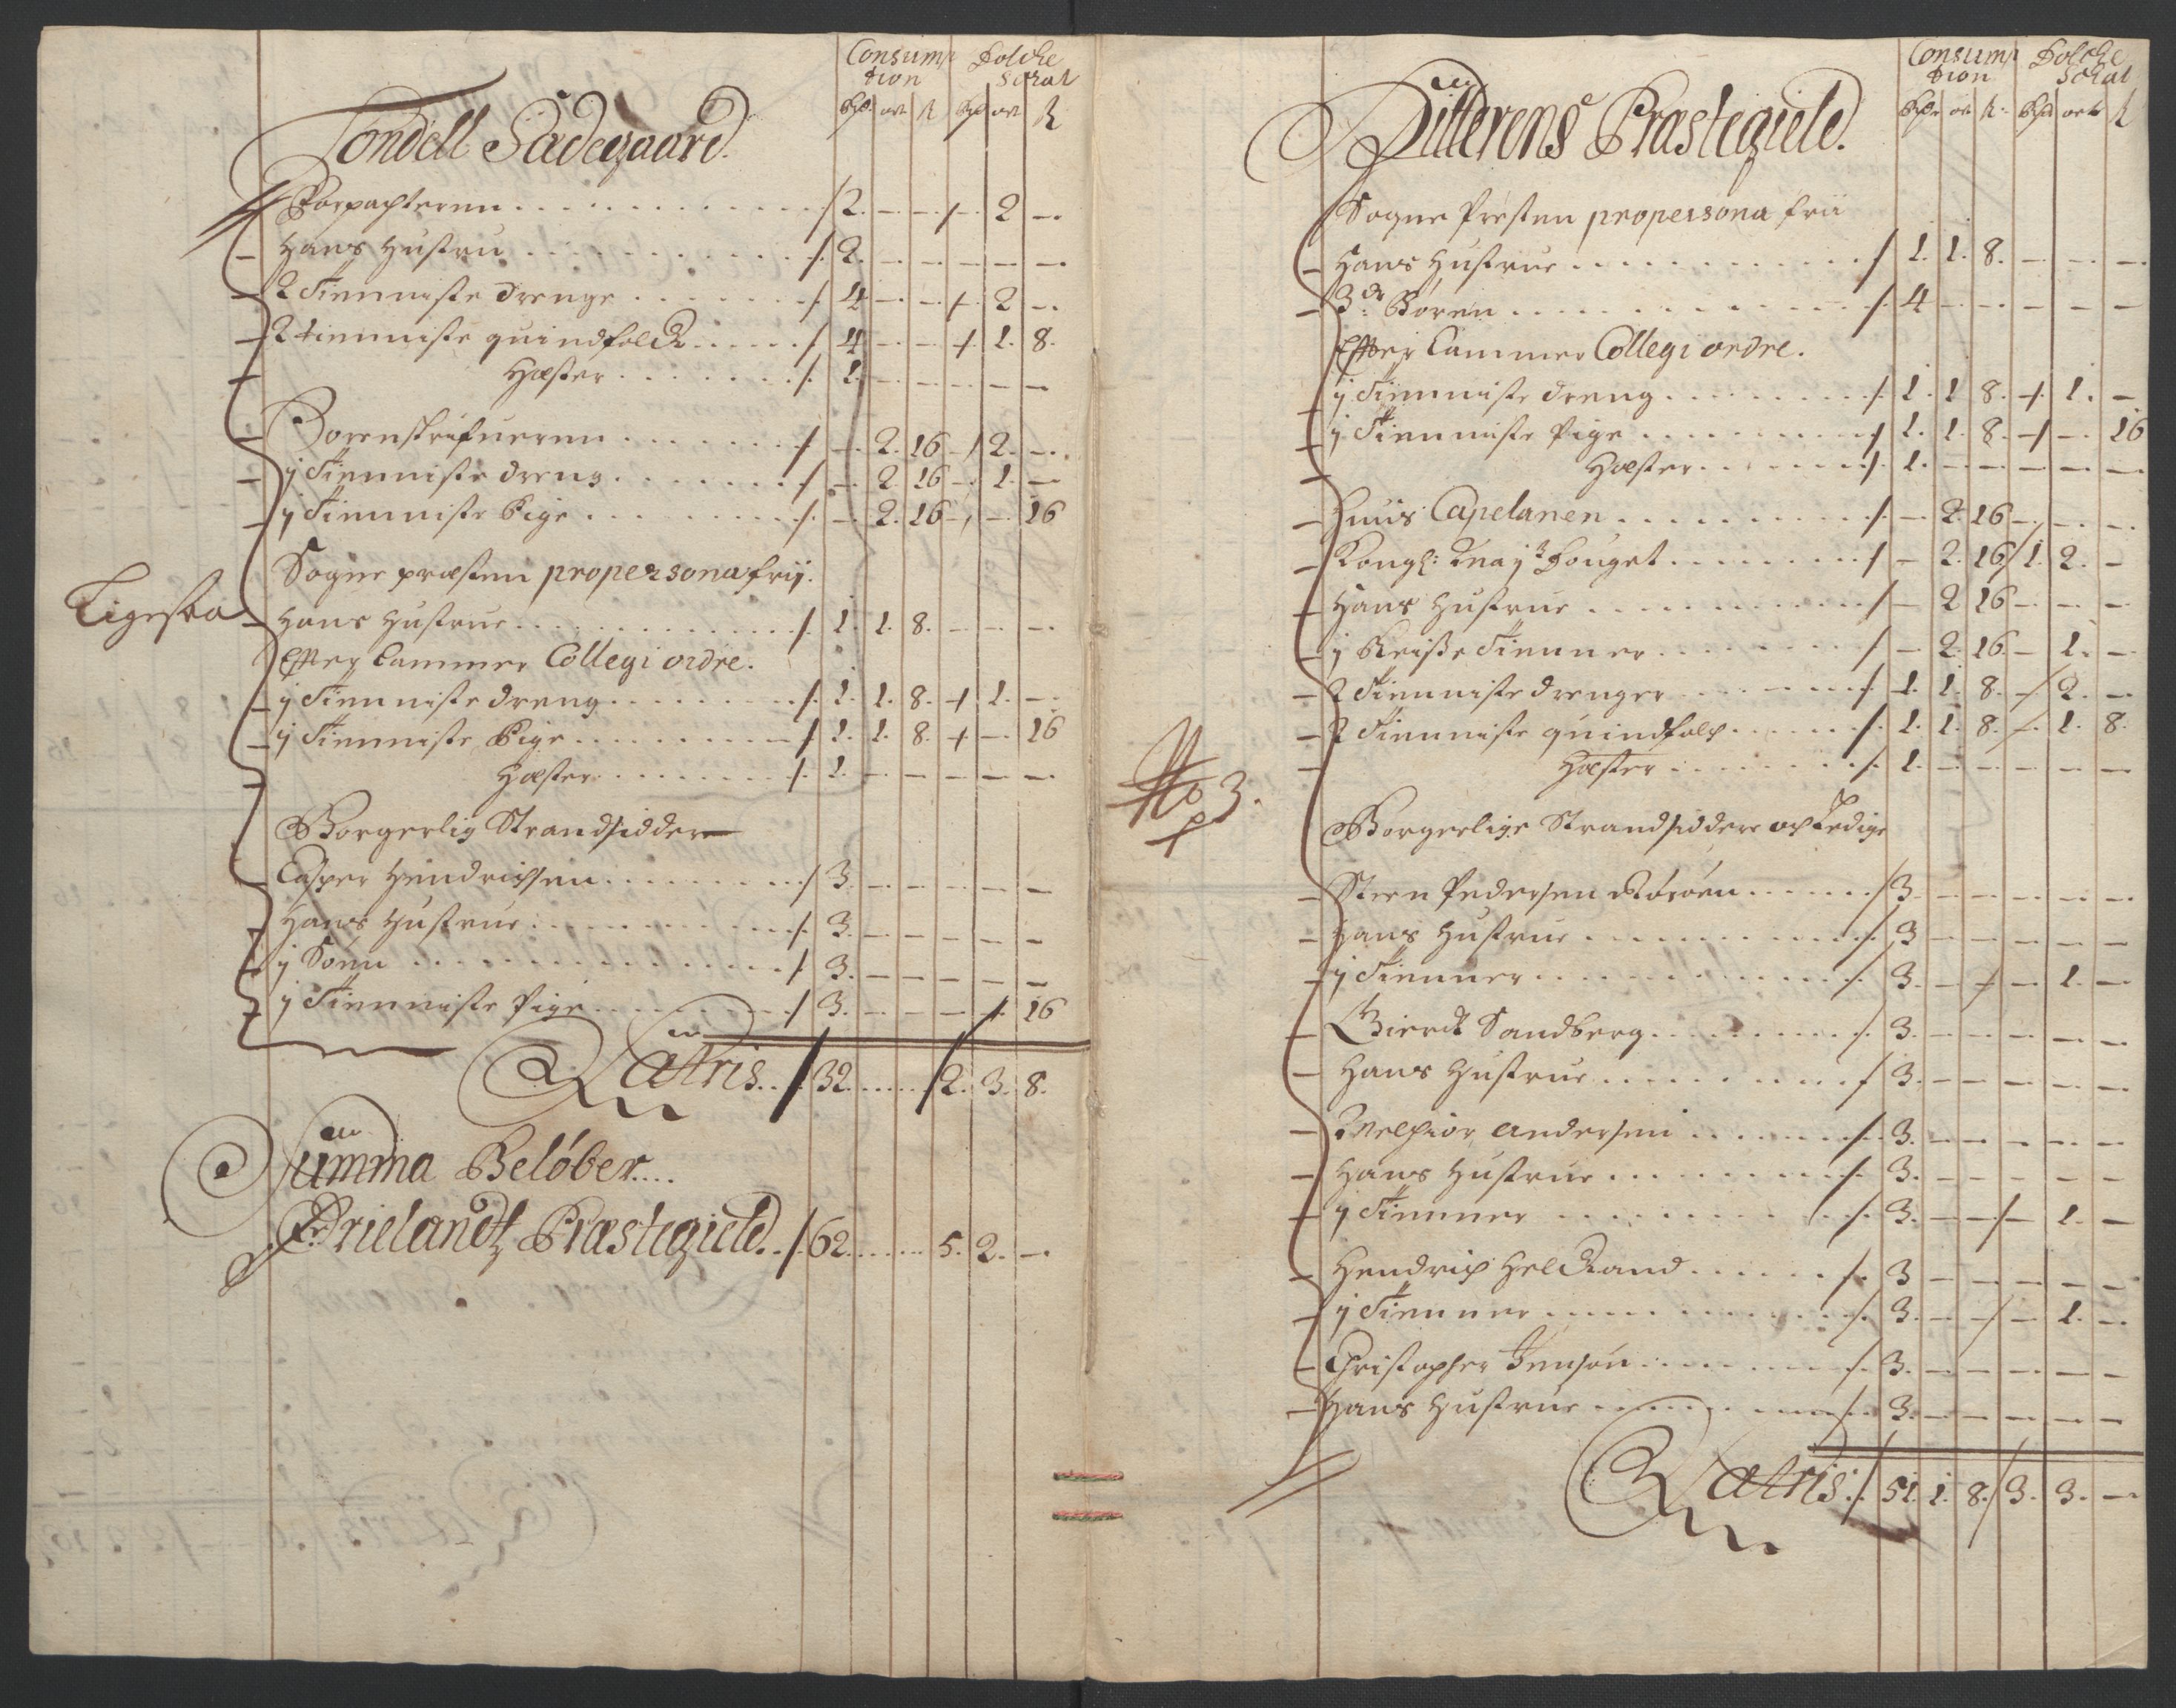 Consump Folche
tion Schat
Rdr ort ß Rdr ort ß
Tondell Sædegaard.
Forpachteren . . . . /2. — — /— 2 —
Hans Hustru . . . . / 2. — — — — —
2 Tienniste drenge . . . . / 4 — — / 2 —
2 tienniste quindfolck . . . . / 4 — — / 1. 8.
Hæster . . . . / 1. — — — — —
Sorenskrifueren . . . . / — 2. 16 / 2. —
j Tienniste dreng . . . . / — 2 16 — 1. —
j Tienniste Pige . . . . / — 2. 16 / — 16
Sogne præsten propersona frij.
Hans Hustrue . . . . / 1. 1. 8. — — —
Effter Cammer Collegi ordre.
j Tienniste dreng . . . . / 1. 1. 8. / 1. —
j Tienniste Pige . . . . / 1. 1. 8. / — 16
Hæster . . . . / 1. — — — — —
Borgerlig Strandsiddere
Casper Hendrichsen . . . . / 3. — — — — —
Hans Hustrue . . . . / 3. — — — — —
j Sønn . . . . / 3. — — — — —
j Tienniste Pige . . . . / 3. — — — / 16
Latris . . / 32 . . . . / 2. 3. 8.
Summa Beløber . . . .
Ørlandtz Præstegield . . / 62 . . . . 5. 2. —
Consump Folche
tion Schat
Rdr ort ß: Rdr ort ß
Hitterens Præstegield.
Sogne Presten propersona frii
Hans Hustrue . . . . / 1. 1. 8. — — —
3de Børen . . . . / 4 — — — — —
Effter Cammer Collegi ordre.
j Tienniste dreng . . . . / 1. 1 8. / 1. —
j Tienniste Pige . . . . / 1. 1. 8. / — 16
Hæster . . . . / 1. — — — — —
Huus Capelanen . . . . / — 2. 16 — — —
Kongl: May:tz Fouget . . . . / — 2. 16 / 1. 2. —
Hans Hustrue . . . . / — 2 16 — — —
j Reisse Tienner . . . . / — 2. 16 — 1. —
2 Tienniste drenger . . . . / 1. 1. 8. / 2. —
2 Tienniste quindfolch . . . . / 1. 1. 8. / 1. 8.
Hæster . . . . / 1. — — — — —
No 3.
Borgerlige Strandsiddere och Ledige
Steen Pedersen . . . . / 3. — — — — —
Hans Hustrue . . . . / 3 — — — — —
j Tienner . . . . / 3. — / — 1. —
Gierdt Sandberg . . . . / 3. — — — — —
Hans Hustrue . . . . / 3. — — — — —
Melchior Andersen . . . . / 3. — — — — —
Hans Hustrue . . . . / 3. — — — — —
j Tienner . . . . / 3. — — / 1. —
Hendrich Helckand . . . . / 3 — — — — —
j Tienner . . . . / 3. — — / 1. —
Christopher Jensøn . . . . / 3. — — — — —
Hans Hustrue . . . . / 3. — — — — —
Latris . . / 51. 1. 8. / 3. 3. —